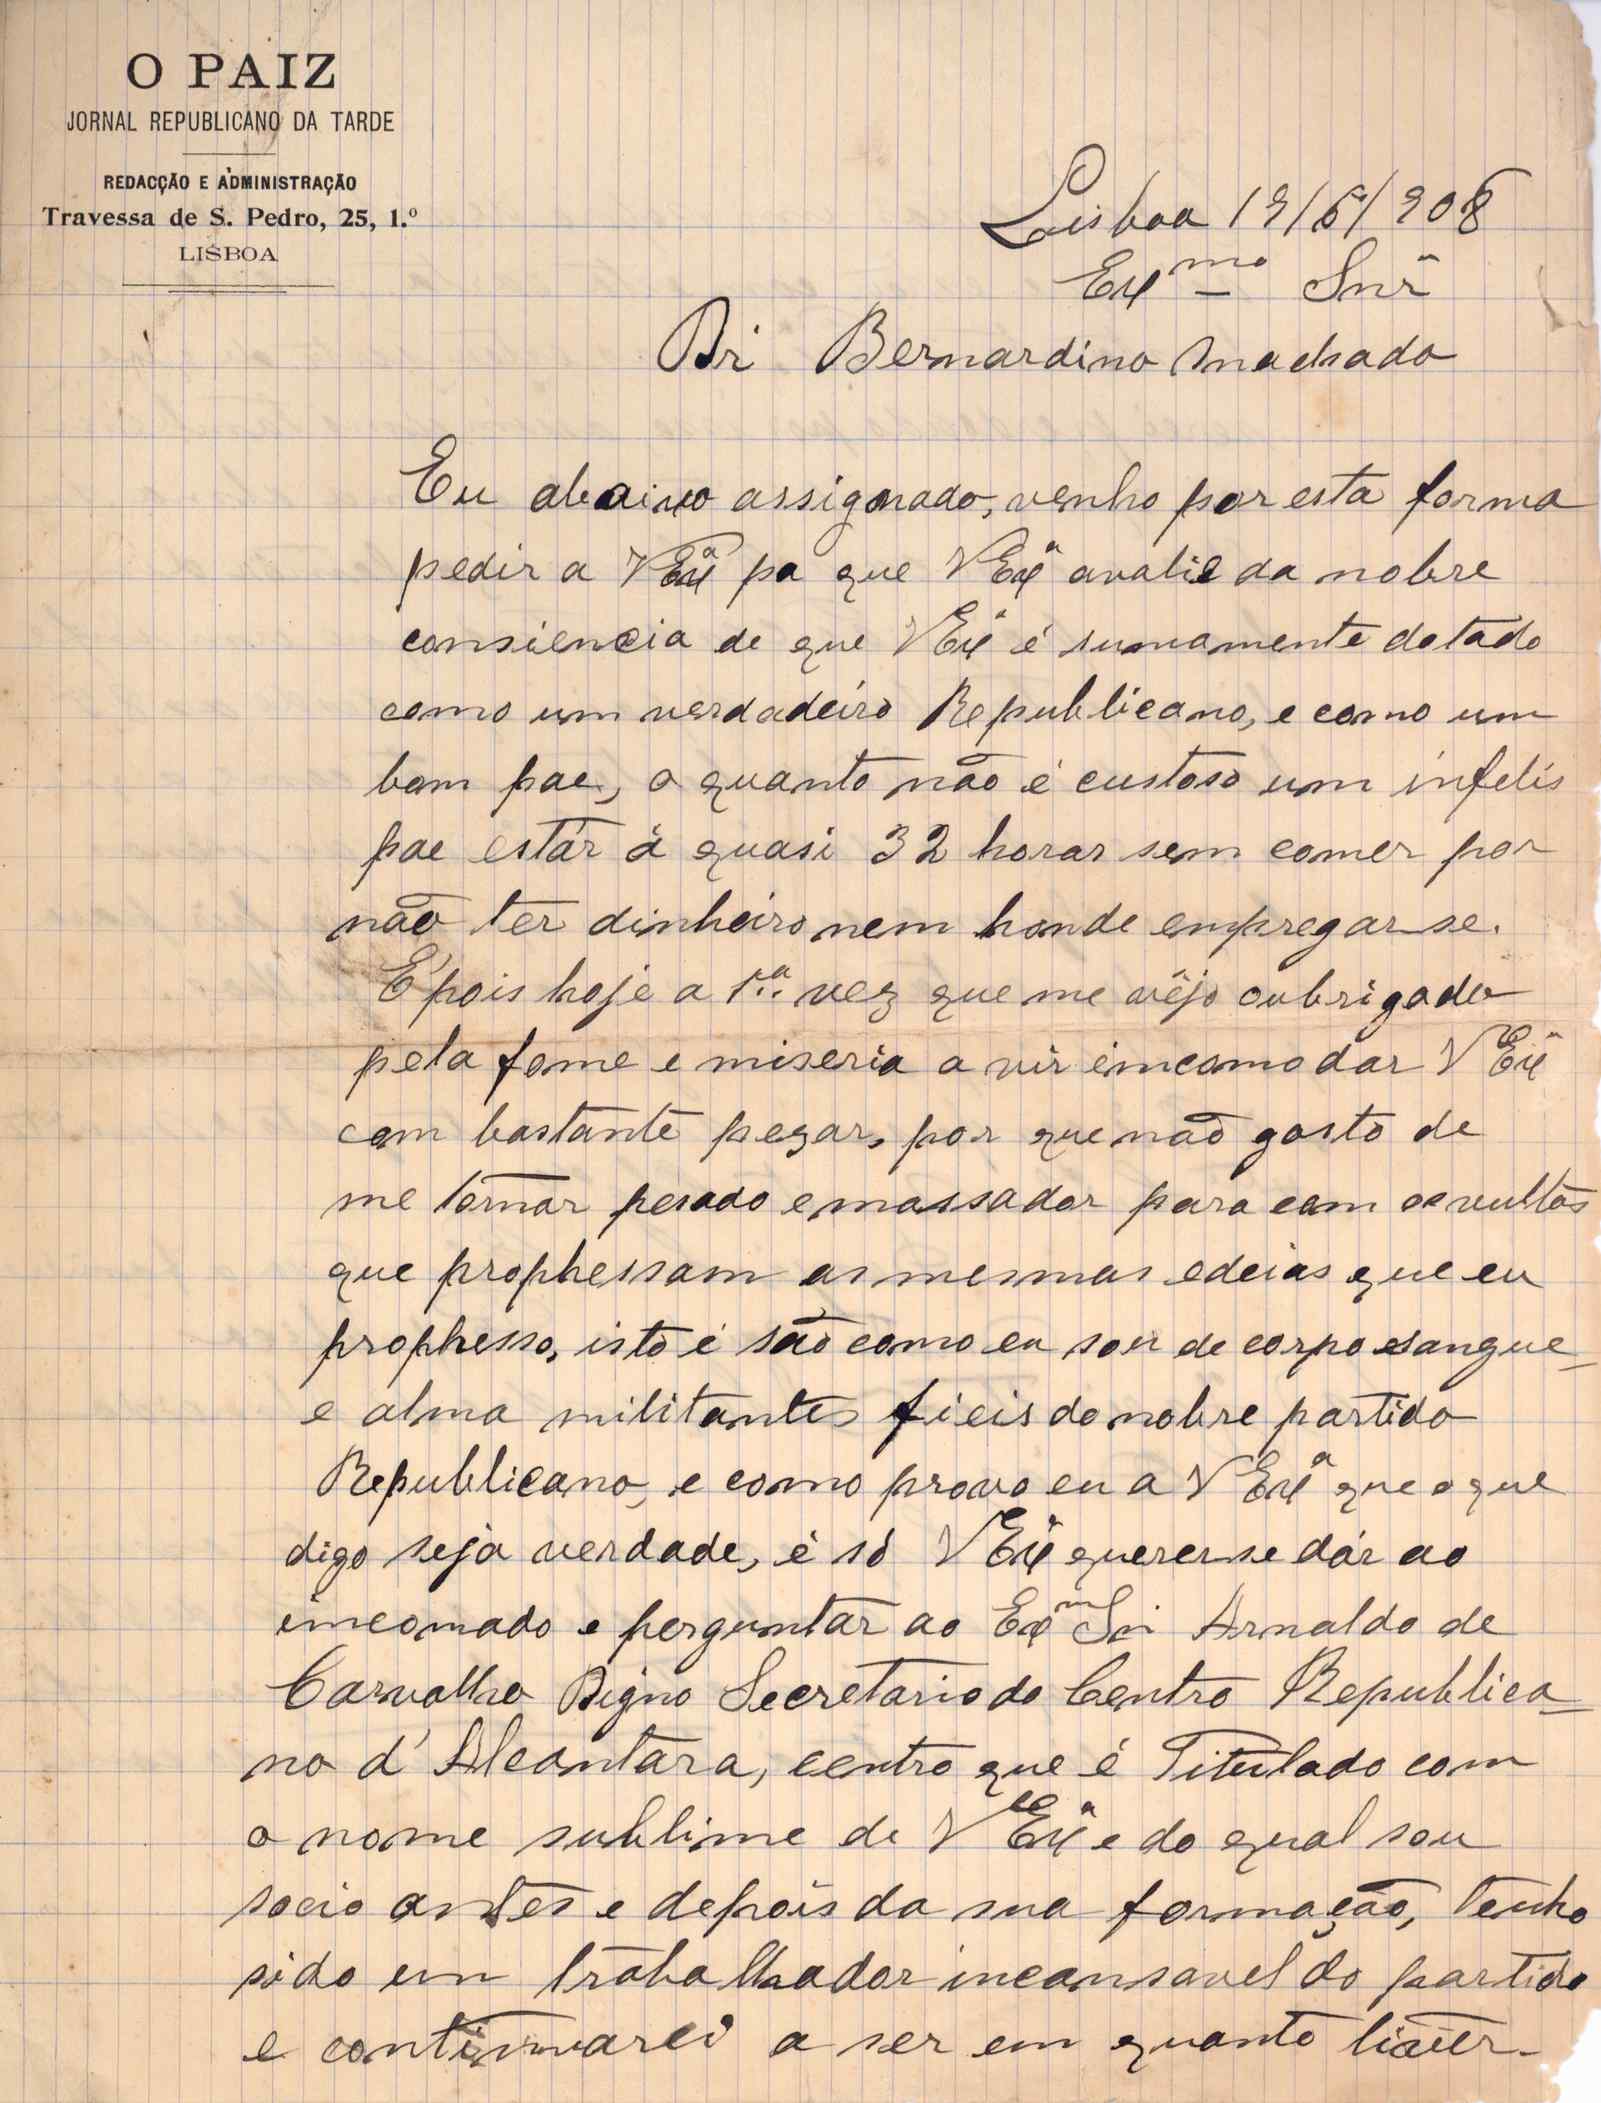 O PAIZ
JORNAL REPUBLICANO DA TARDE
REDACÇÃO E ADMINISTRAÇÃO
Travessa de S. Pedro, 25, 1.º
LISBOA
Lisboa 19/6/908
Exmo Snr
Dr Bernardino Machado
Eu abaixo assignado, venho por esta forma
pedir a VExª pa que VExª avalie da nobre
consiencia de que VExª é sumamente dotado
como um verdadeiro Republicano, e como um
bom pae, o quanto não é custoso um infelis
pae estár á quasi 32 horas sem comer por
não ter dinheiro nem honde empregar se.
É pois hoje a 1ª vez que me vêjo oubrigado
pela fome e miseria a vir emcomodar VExª
com bastante pezar, por que não gosto de
me tornar pesado e massador para com os vultos
que prophessam as mesmas edeias que eu
prophesso, isto é são como eu sou de corpo e sangue
e alma militantes fieis do nobre partido
Republicano, e como provo eu a VExª que o que
digo seja verdade, é só VExª querer se dár ao
imcomado e perguntar ao Exmo Snr Arnaldo de
Carvalho Digno Secretario do Centro Republica=
no d'Alcantara, centro que é Titulado com
o nome sublime de VExª e do qual sou
socio antes e depois da sua formação, tenho
sido um trabalhador incansavel do partido
e continuarei a ser em quanto